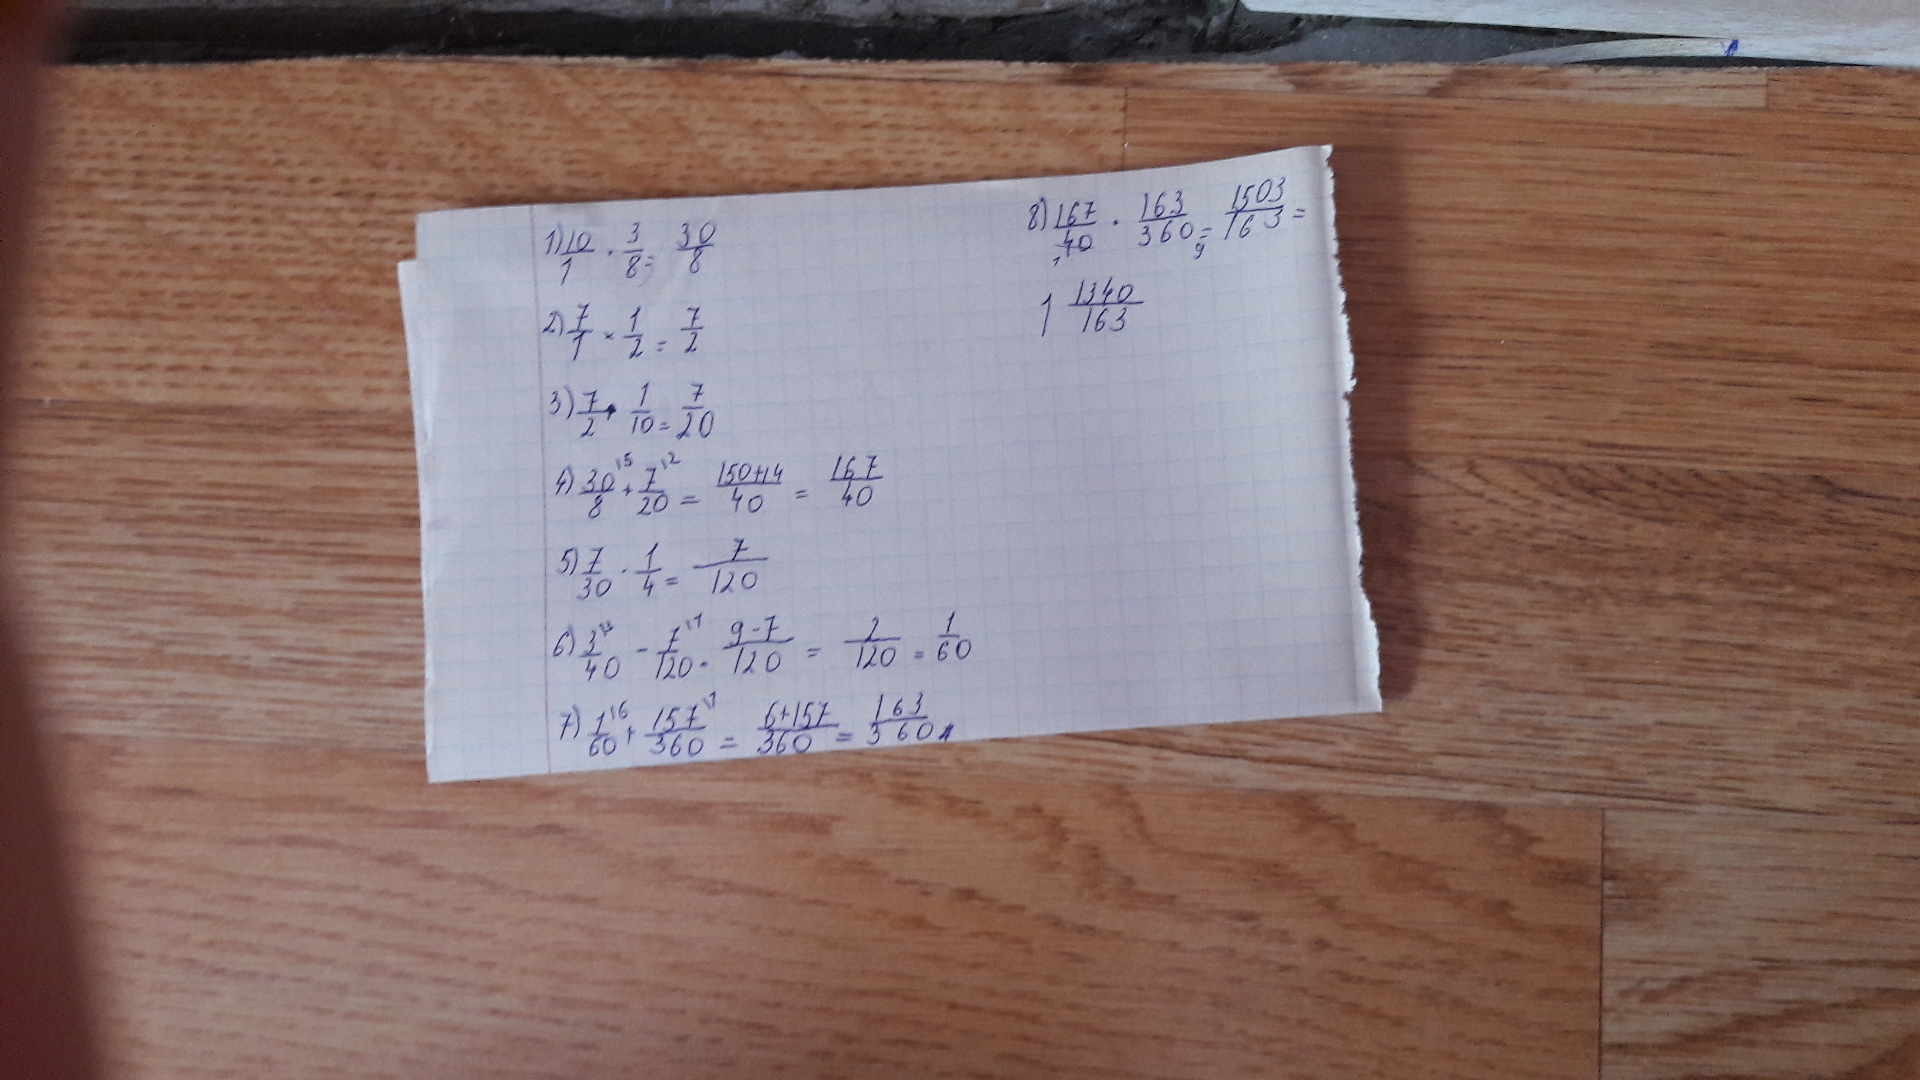 1) 10/1 · 3/8 = 30/8
2) 7/1 × 1/2 = 7/2
3) 7/2 · 1/10 = 7/20
4) 30/8 ⁽⁵ + 7/20 ⁽² = 150+14/40 = 167/40
5) 7/30 · 1/4 = 7/120
6) 3/40 - 7/120 ⁽¹ = 9-7/120 = 2/120 = 1/60
7) 1/60 ⁽⁶ + 157/360 ⁽¹ = 6+157/360 = 163/360
8) 167/40 · 163/360 = 1503/163 =
1 1340/163